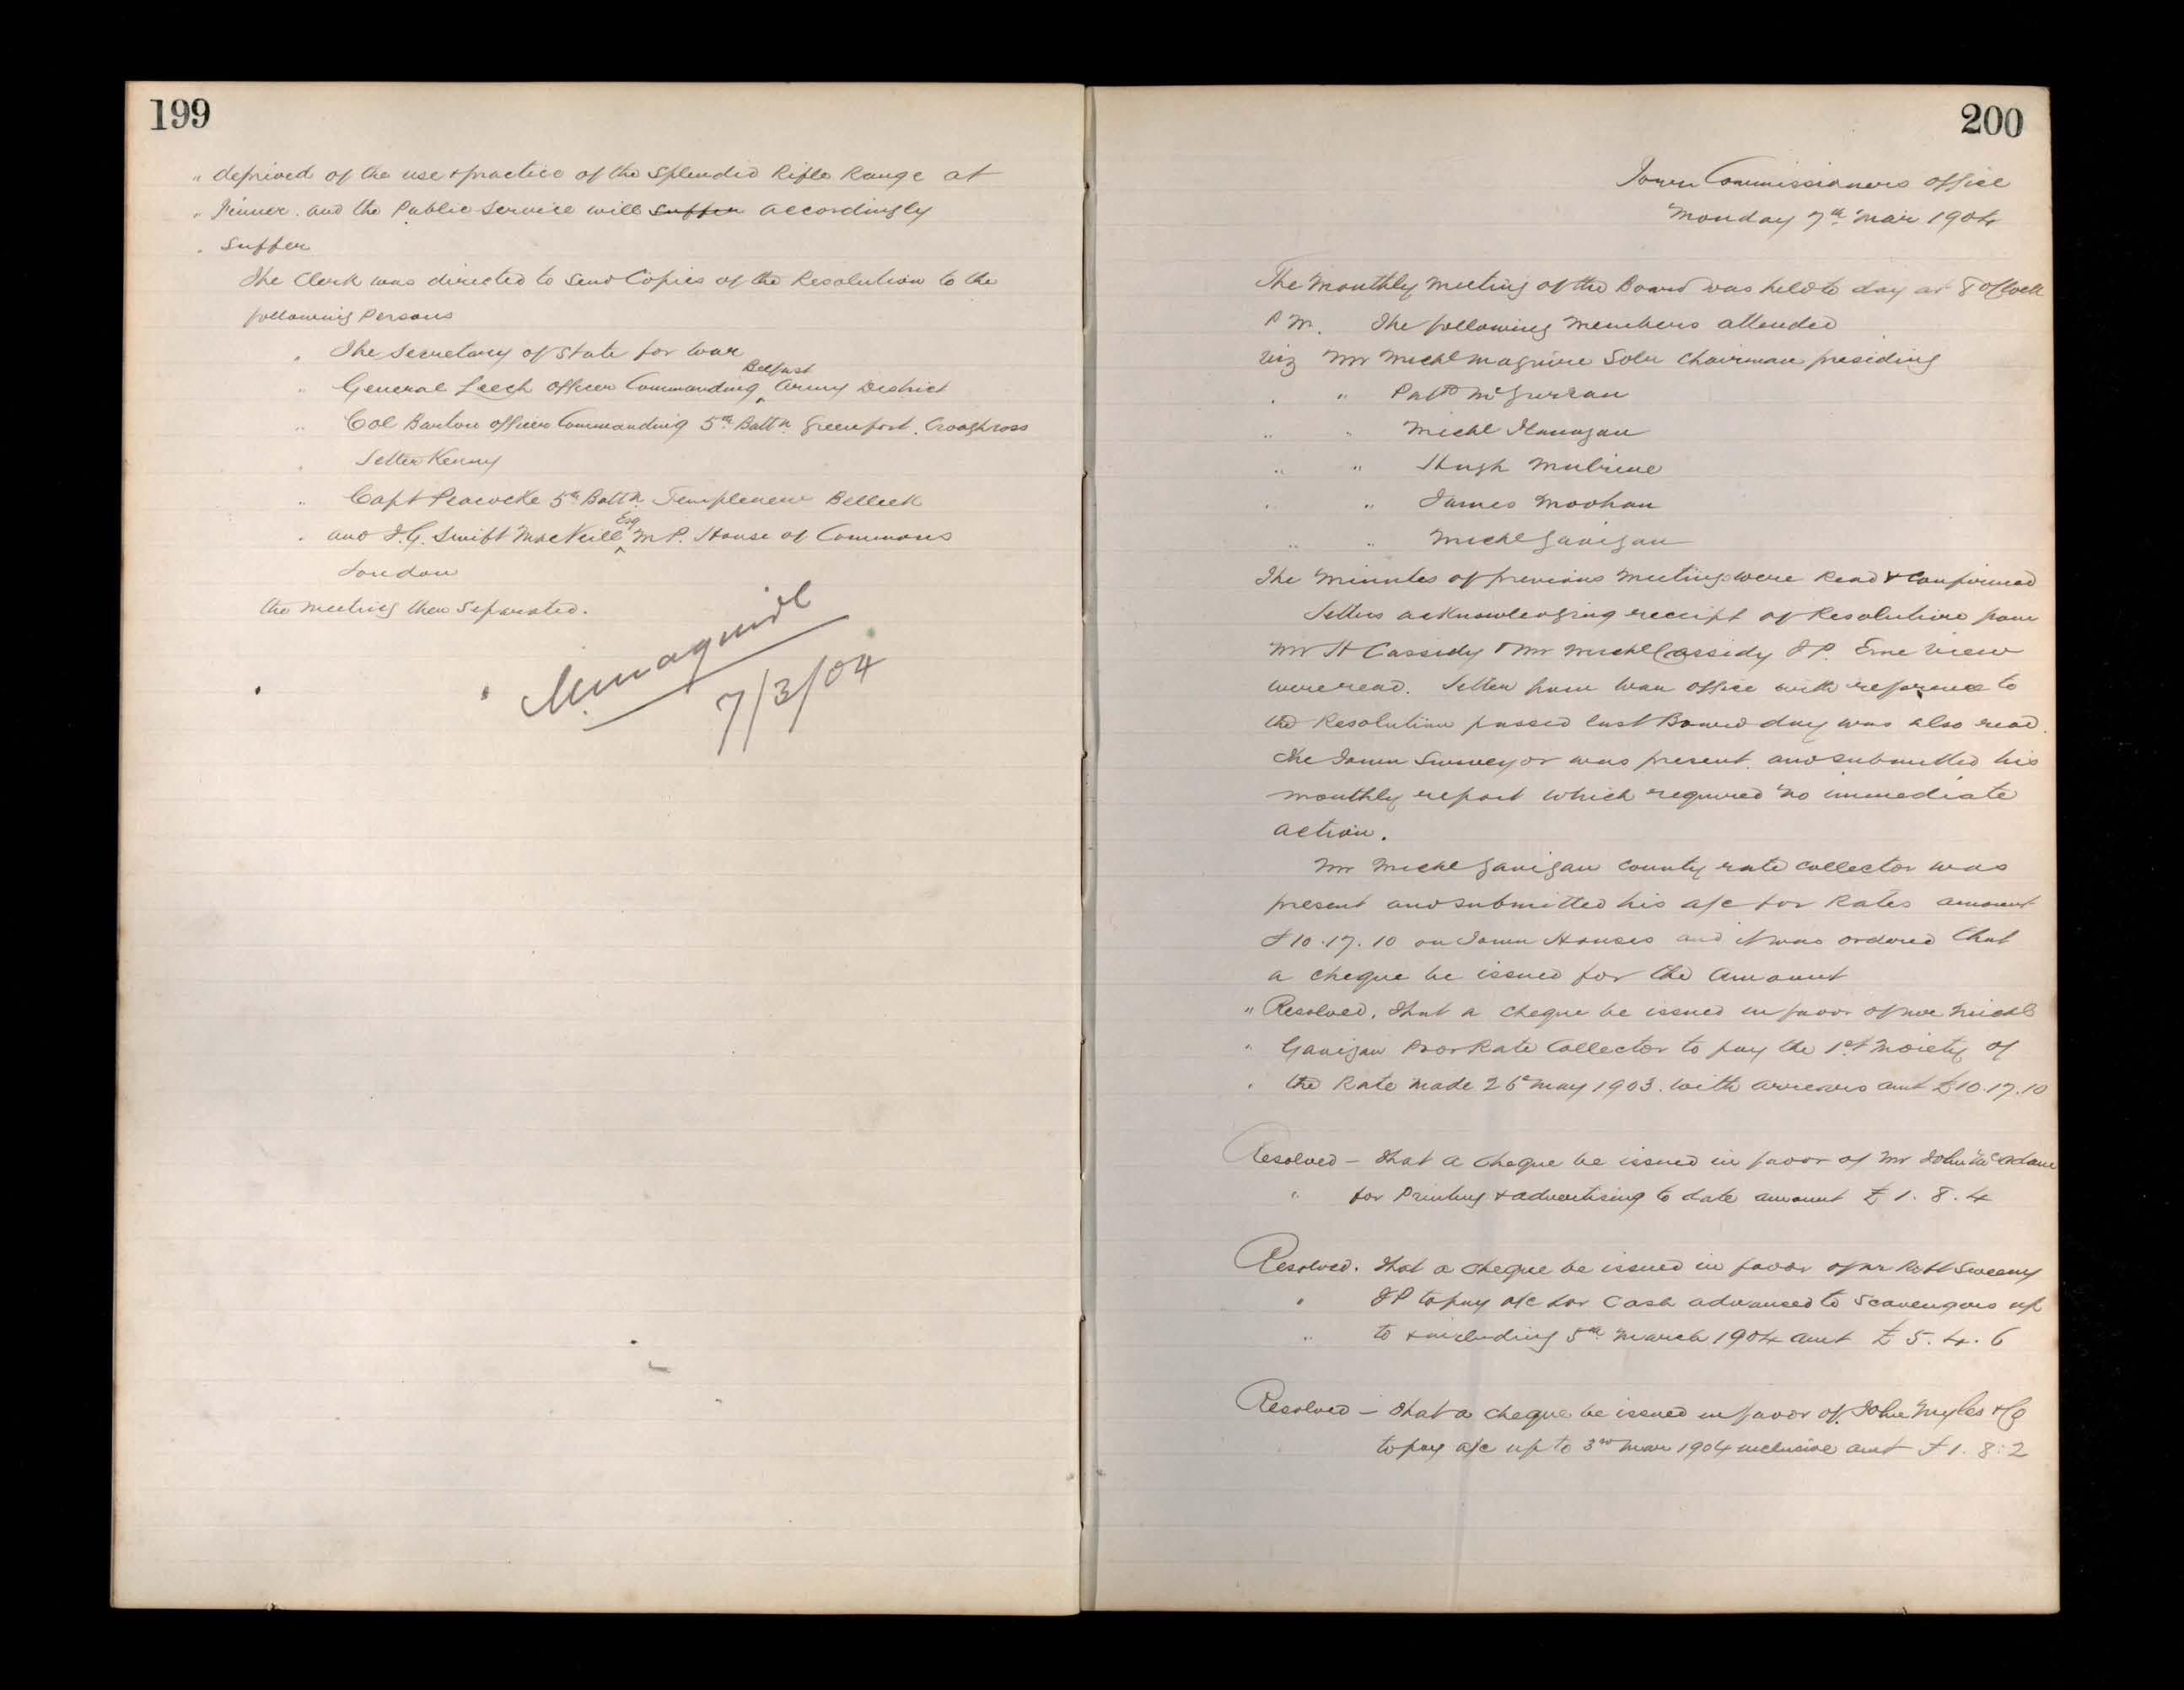 199
" deprived of the use & practice of the Splendid Rifle Range at
" Finner. and the Public Service will suffer accordingly
" Suffer
The Clerk was directed to Send Copies of the Resolution to the
following Persons
" The Secretary of State for War
Belfast
" General Leech Officer Commanding Army District
" Col Barton officer Commanding 5th Battn. Greenfort. Croaghross
" Letterkenny
" Capt Peacocke 5th Battn. Belleek
Esq
" and J.G. Swift MacNeill M.P. House of Commons
London
the meeting then Separated.
M Maguire
7/3/04
200
Town Commissioners office
Monday 7th Mar 1904
The Monthly Meeting of the Board was held to day at 8 O'Clock
P M. The following Members attended
Viz Mr Michl Maguire Solr Chairman presiding
" " Patk McGurran
" " Michl Flanagan
" " Hugh Mulrine
" " James Moohan
" " Michl Gavigan
The Minutes of previous Meeting were Read & Confirmed
Letters acknowledging receipt of Resolution from
Mr H Cassidy & Mr Michl Cassidy J P. Erne View
were read. Letter from War Office with reference to
the Resolution passed last Board day was also read.
The Town Surveyor was present and submitted his
monthly report which required no immediate
action.
Mr Michl Gavigan County rate Collector was
present and submitted his a/c for Rates amount
£10.17.10 on Town Houses and it was ordered that
a cheque be issued for the Amount
" Resolved. That a cheque be issued in favor of Mr Michl
" Gavigan Poor Rate Collector to pay the 1st Moiety of
" the Rate Made 26th May 1903. with arrears amt £10.17.10
Resolved – That a Cheque be issued in favor of Mr John McAdam
" for Printing & advertising to date amount £ 1. 8. 4
Resolved. That a cheque be issued in favor of Mr Robt Sweeny
" J P to pay a/c for Cash advanced to Scavengers up
" to & including 5th March 1904 amt £ 5. 4. 6
Resolved – That a cheque be issued in favor of John Myles & Co
to pay a/c up to 3rd Mar 1904 inclusive amt £1. 8: 2